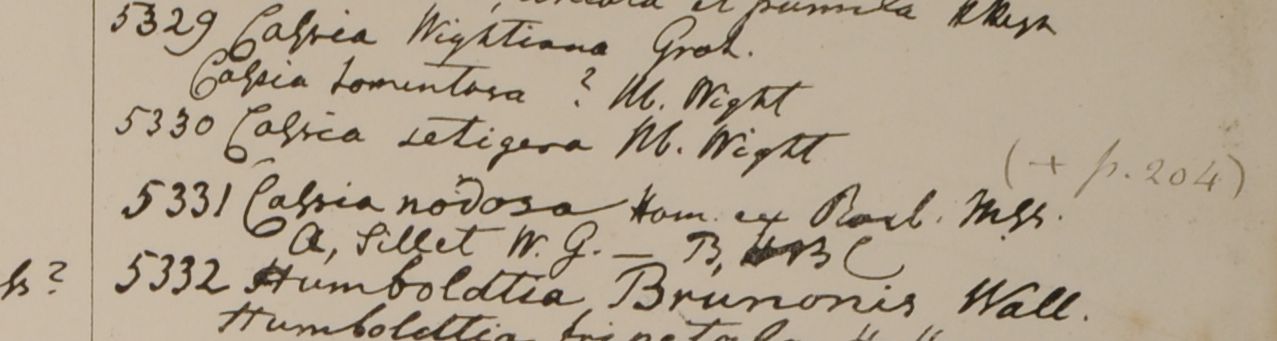 et pumila
5329 Cassia Wightiana Grah.
Cassia tomentosa ? H. Wight
5330 Cassia setigera H. Wight
(+ p. 204)
5331 Cassia nodosa Ham. ex Roxb. Mss.
A, Sillet W. G. — B, HBC
5332 Humboldtia Brunonis Wall.
Humboldtia